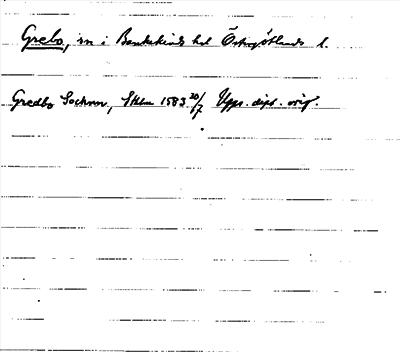 Grebo, sn i Bankekinds hd Östergötlands l.
Gredbo Sochnn, Sthlm 1583 20/7 Upps. dipl. orig.